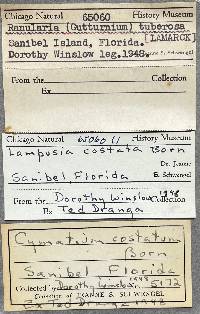 Chicago Natural 65060 History Museum
Ranularia (Gutturnium) tuberosa
Sanibel Island, Florida. [LAMARCK]
Dorothy Winslow leg. 1948. E. Schwengel
From the Collection
Ex
Chicago Natural 65060 (1 History Museum
Lampusia costata Born
Dr. Jeanne
Sanibel, Florida E. Schwengel
From the Dorothy Winslow Collection 1948
Ex Ted Dranga
Cymatium costatum
Born
Sanibel Florida
Collected by Dorothy Winslow, 1948 5172
Collection of JEANNE S. SCHWENGEL
Ex Ted Dranga 1948